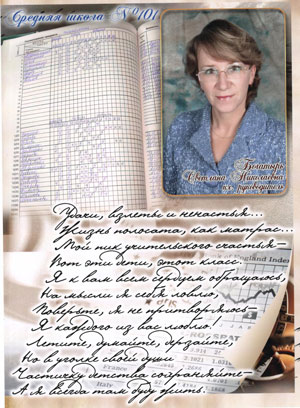 Средняя школа №101
Богатырь
Светлана Николаевна
их руководитель
Удачи, взлеты и ненастья...
Жизнь полосата, как матрас...
Мой пик учительского счастья-
Вот эти дети, этот класс.
Я к вам всем сердцем обращаюсь,
На мысли я себя ловлю,
Поверьте, я не притворяюсь-
Я каждого из вас люблю!
Летите, думайте, дерзайте,
Но в уголке своей души
Частичку детства сохраняйте-
А я всегда там буду жить!
Index
Italy
France